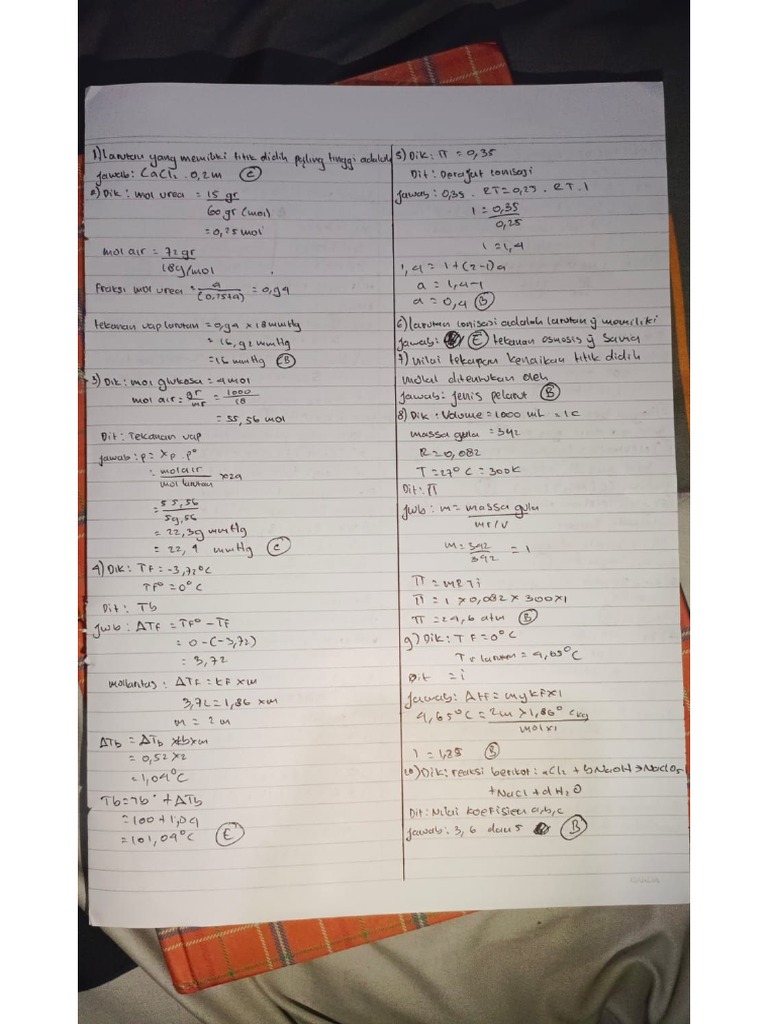 1) Larutan yang memiliki titik didih paling tinggi adalah
Jawab: CaCl2 . 0,2 m (C)
2) Dik: mol urea = 15 gr
60 gr (mol)
= 0,25 mol
mol air = 72 gr
18 g/mol
Fraksi mol urea = 4
(0,25+4) = 0,94
tekanan uap larutan = 0,94 x 18 mmHg
= 16,92 mmHg
= 16 mmHg (B)
3) Dik: mol glukosa = 4 mol
mol air = gr = 1000
mr 18
= 55,56 mol
Dit: Tekanan uap
Jawab: p = Xp . p°
= mol air x 24
mol larutan
= 55,56
59,56
= 22,39 mmHg
= 22,4 mmHg (C)
4) Dik: TF = -3,72°C
TF° = 0°C
Dit: Tb
Jwb: ΔTF = TF° - TF
= 0 - (-3,72)
= 3,72
molalitas: ΔTF = KF x m
3,72 = 1,86 x m
m = 2 m
ΔTb = ΔTb x kb x m
= 0,52 x 2
= 1,04°C
Tb = Tb° + ΔTb
= 100 + 1,04
= 101,04°C (E)
5) Dik: π = 0,35
Dit: Derajat Ionisasi
Jawab: 0,35 . RT = 0,25 . RT . i
i = 0,35
0,25
i = 1,4
1,4 = 1 + (2-1) a
a = 1,4-1
a = 0,4 (B)
6) larutan Ionisasi adalah larutan ÿ memiliki
Jawab: (E) tekanan osmosis ÿ sama
7) nilai tekapan kenaikan titik didih
molal ditentukan oleh
Jawab: jenis pelarut (B)
8) Dik: Volume = 1000 mL = 1 L
massa gula = 342
R = 0,082
T = 27°C = 300K
Dit: π
Jwb: m = massa gula
mr/v
m = 342 = 1
342
π = MRTi
π = 1 x 0,082 x 300 x 1
π = 24,6 atm (B)
9) Dik: TF = 0°C
TF larutan = 4,65°C
Dit = i
Jawab: ΔTF = m x KF x i
4,65°C = 2m x 1,86°C kg
mol x i
i = 1,25 (B)
10) Dik: reaksi berikut: aCl2 + b NaOH → NaClO3
+ NaCl + d H2O
Dit: Nilai koefisien a, b, c
Jawab: 3, 6 dan 5 (B)